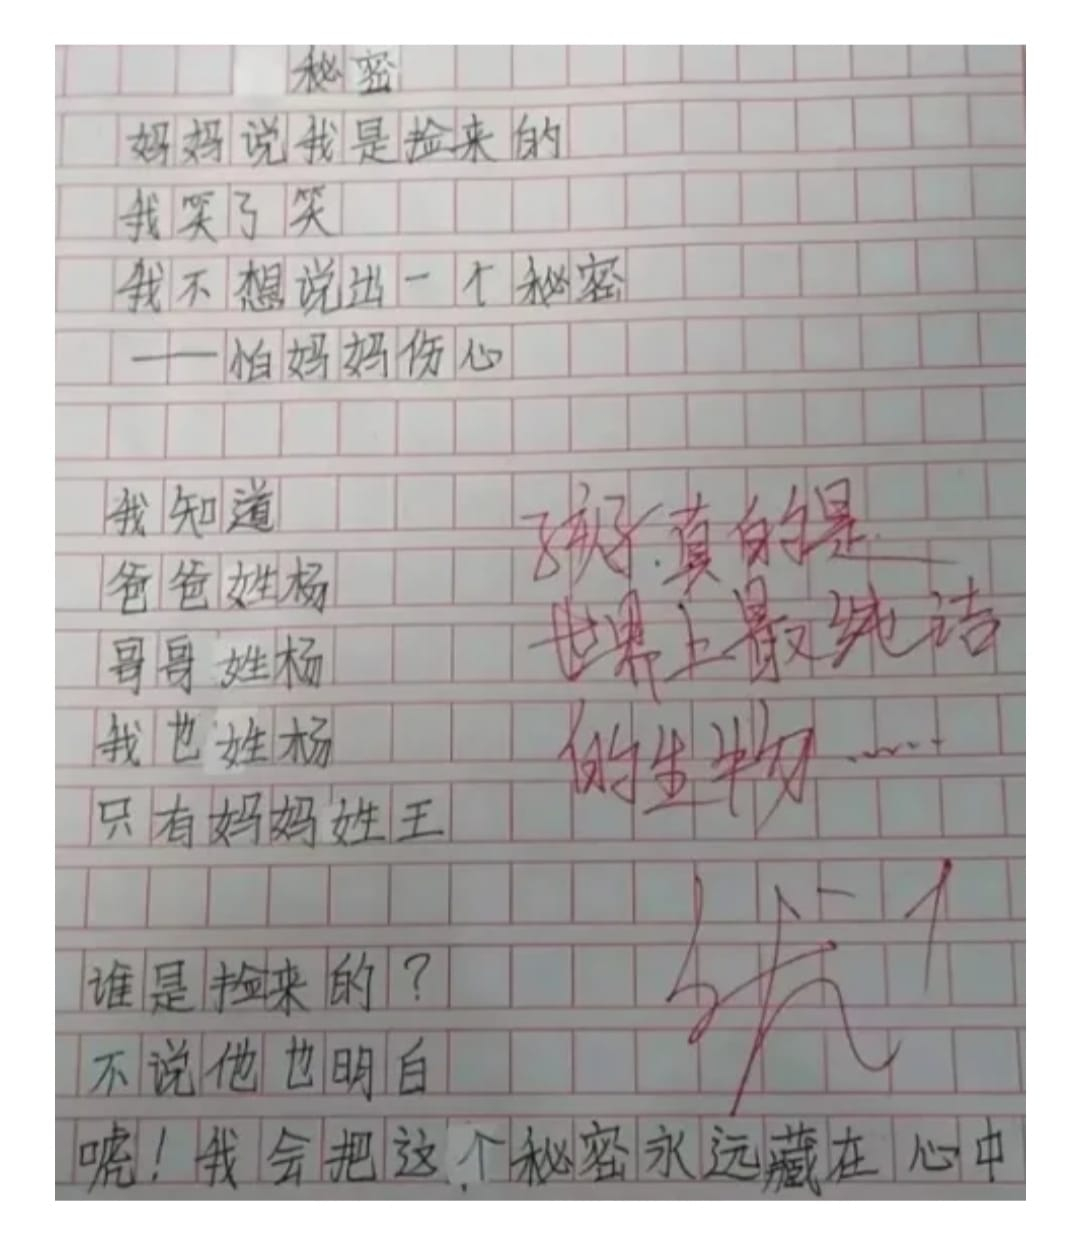 秘密
妈妈说我是捡来的
我笑了笑
我不想说出一个秘密
——怕妈妈伤心
我知道
爸爸姓杨
哥哥姓杨
我也姓杨
只有妈妈姓王
谁是捡来的？
不说他也明白
唬！我会把这个秘密永远藏在心中
孩子.真的是
世界上最纯洁
的生物……
优